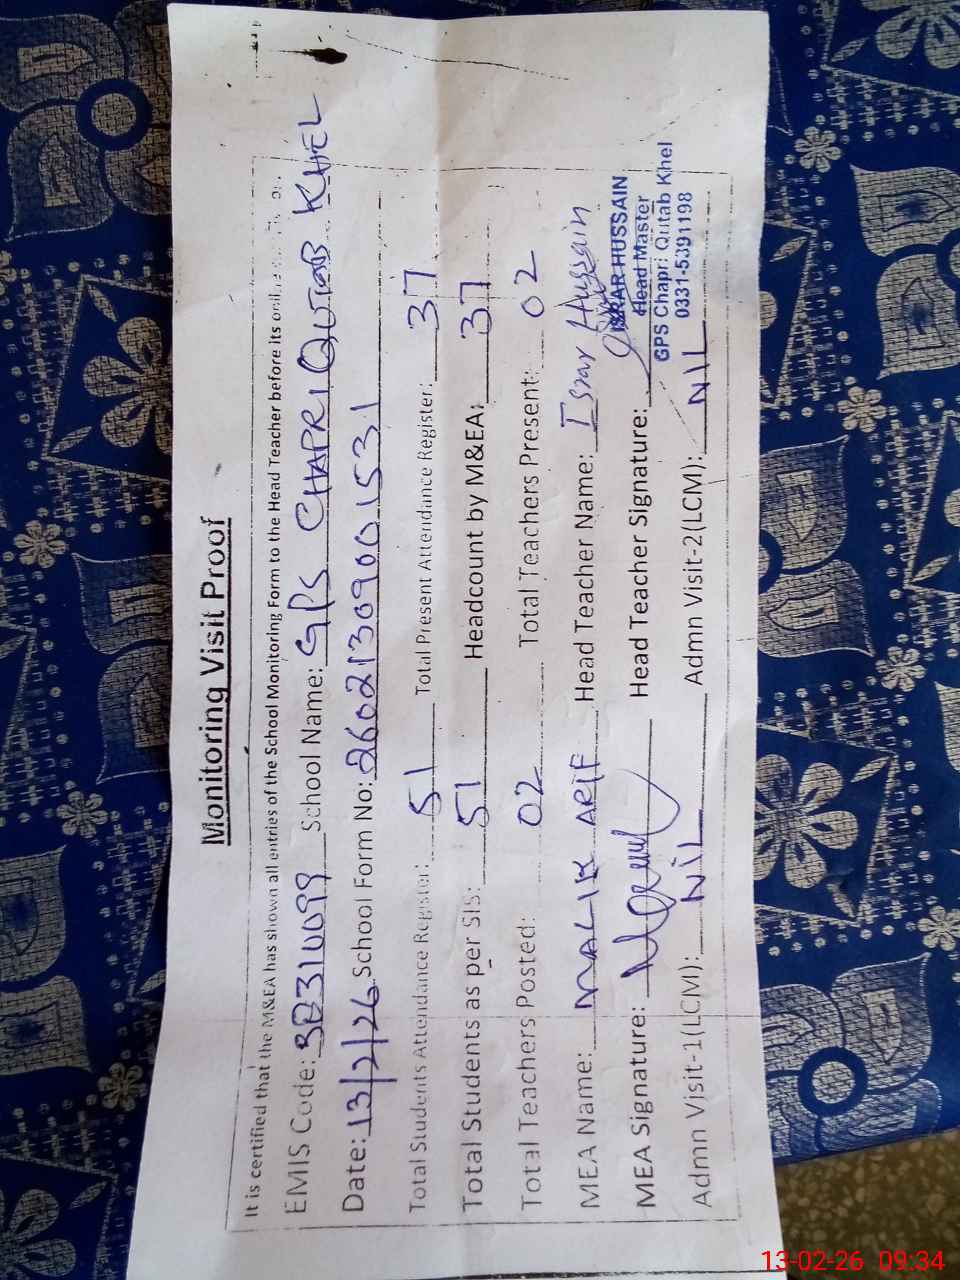 Monitoring Visit Proof
It is certified that the M&EA has shown all entries of the School Monitoring Form to the Head Teacher before its
EMIS Code: School Name: GPS CHAPRI QUTAB KHEL
Date: 13/2/26 School Form No: 26021309001531
Total Students Attendance Register: 51 Total Present Attendance Register: 37
Total Students as per SIS: 51 Headcount by M&EA: 37
Total Teachers Posted: 02 Total Teachers Present: 02
MEA Name: MALIK ARIF Head Teacher Name: Israr Hussain
MEA Signature: Head Teacher Signature:
ISRAR HUSSAIN
Head Master
GPS Chapri Qutab Khel
0331-5391198
Admn Visit-1(LCM): NIL Admn Visit-2(LCM): NIL
13-02-26 09:34